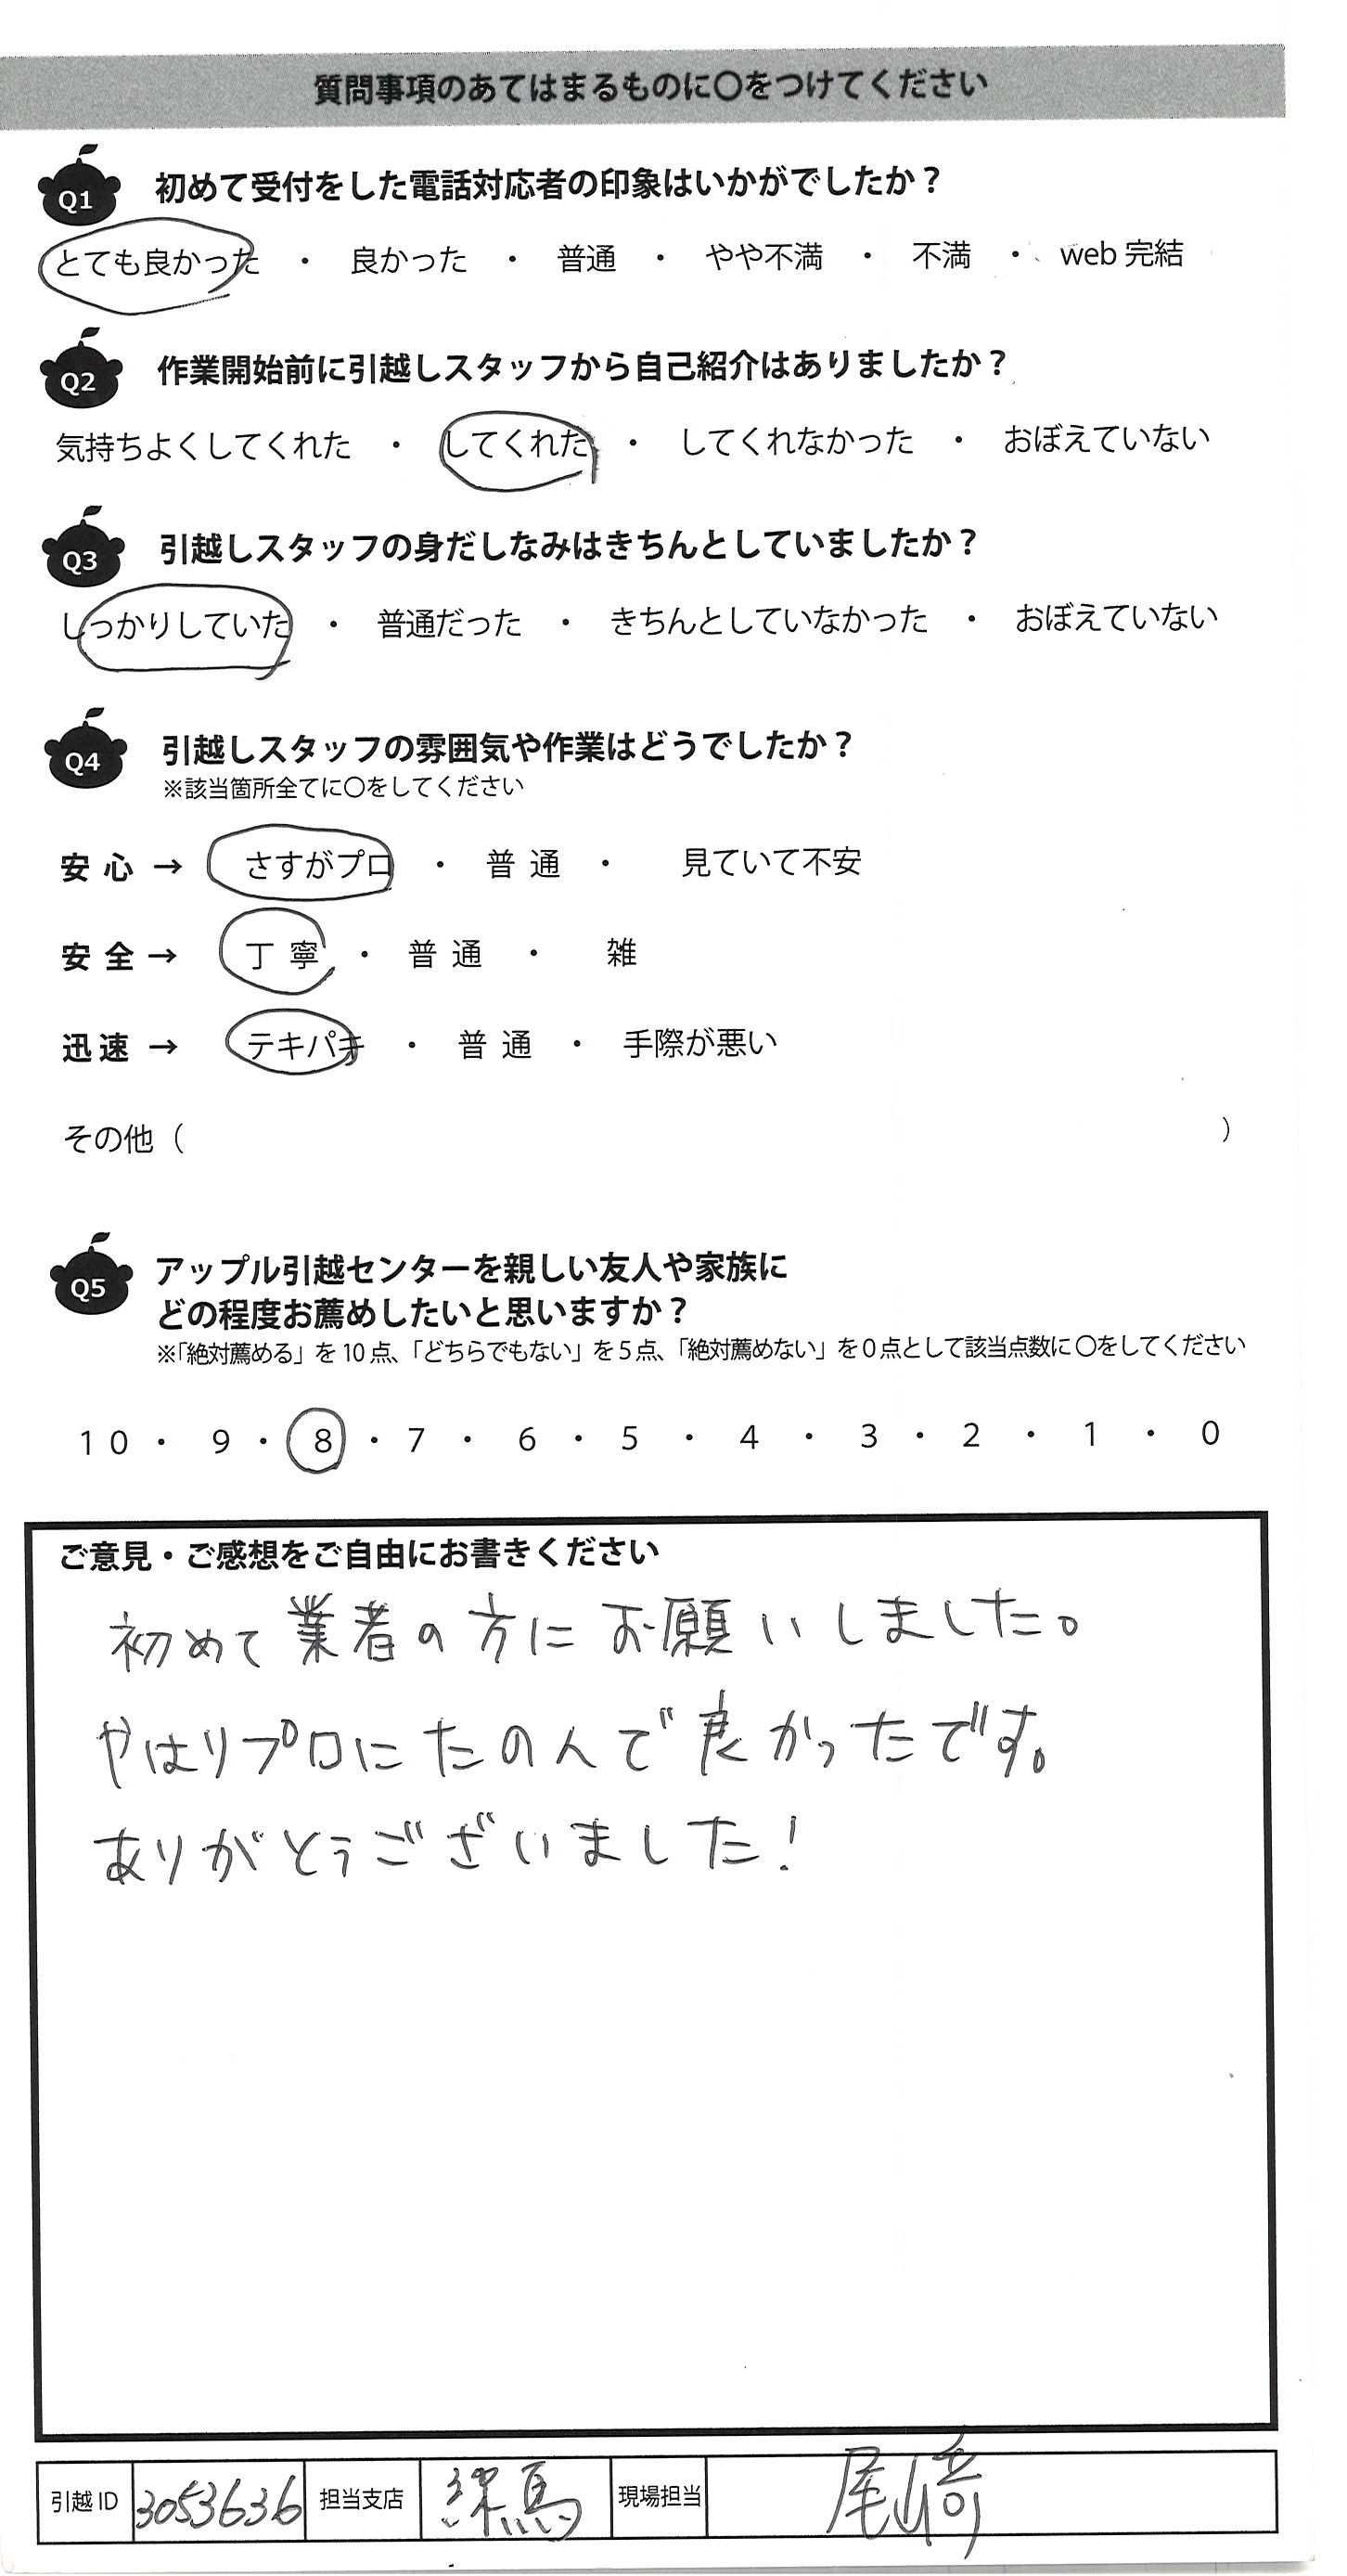 質問事項のあてはまるものに〇をつけてください
Q1 初めて受付をした電話対応者の印象はいかがでしたか？
とても良かった ・ 良かった ・ 普通 ・ やや不満 ・ 不満 ・ web 完結
Q2 作業開始前に引越しスタッフから自己紹介はありましたか？
気持ちよくしてくれた ・ してくれた ・ してくれなかった ・ おぼえていない
Q3 引越しスタッフの身だしなみはきちんとしていましたか？
しっかりしていた ・ 普通だった ・ きちんとしていなかった ・ おぼえていない
Q4 引越しスタッフの雰囲気や作業はどうでしたか？
※該当箇所全てに〇をしてください
安心 → さすがプロ ・ 普通 ・ 見ていて不安
安全 → 丁寧 ・ 普通 ・ 雑
迅速 → テキパキ ・ 普通 ・ 手際が悪い
その他（ ）
Q5 アップル引越センターを親しい友人や家族に
どの程度お薦めしたいと思いますか？
※「絶対薦める」を10点、「どちらでもない」を5点、「絶対薦めない」を0点として該当点数に〇をしてください
10 ・ 9 ・ 8 ・ 7 ・ 6 ・ 5 ・ 4 ・ 3 ・ 2 ・ 1 ・ 0
ご意見・ご感想をご自由にお書きください
初めて業者の方にお願いしました。
やはりプロにたのんで良かったです。
ありがとうございました!
引越ID 3053636 担当支店 練馬 現場担当 尾崎